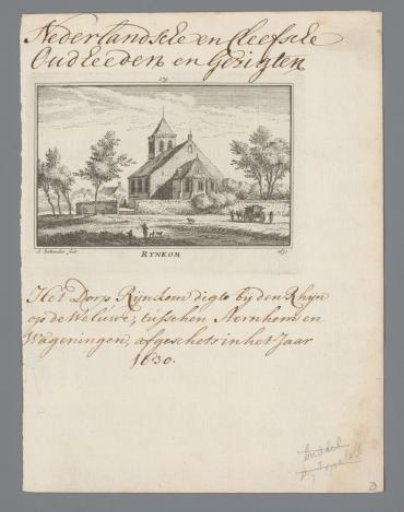 Nederlandsche en Cleefsche
Oudheeden en Gezigten
179
RYNKOM.
Het Dorp Rijnkom digte bij den Rhijn
op de Veluwe, tusschen Aernhem en
Wageningen, afgeschetst in het Jaar
1630.